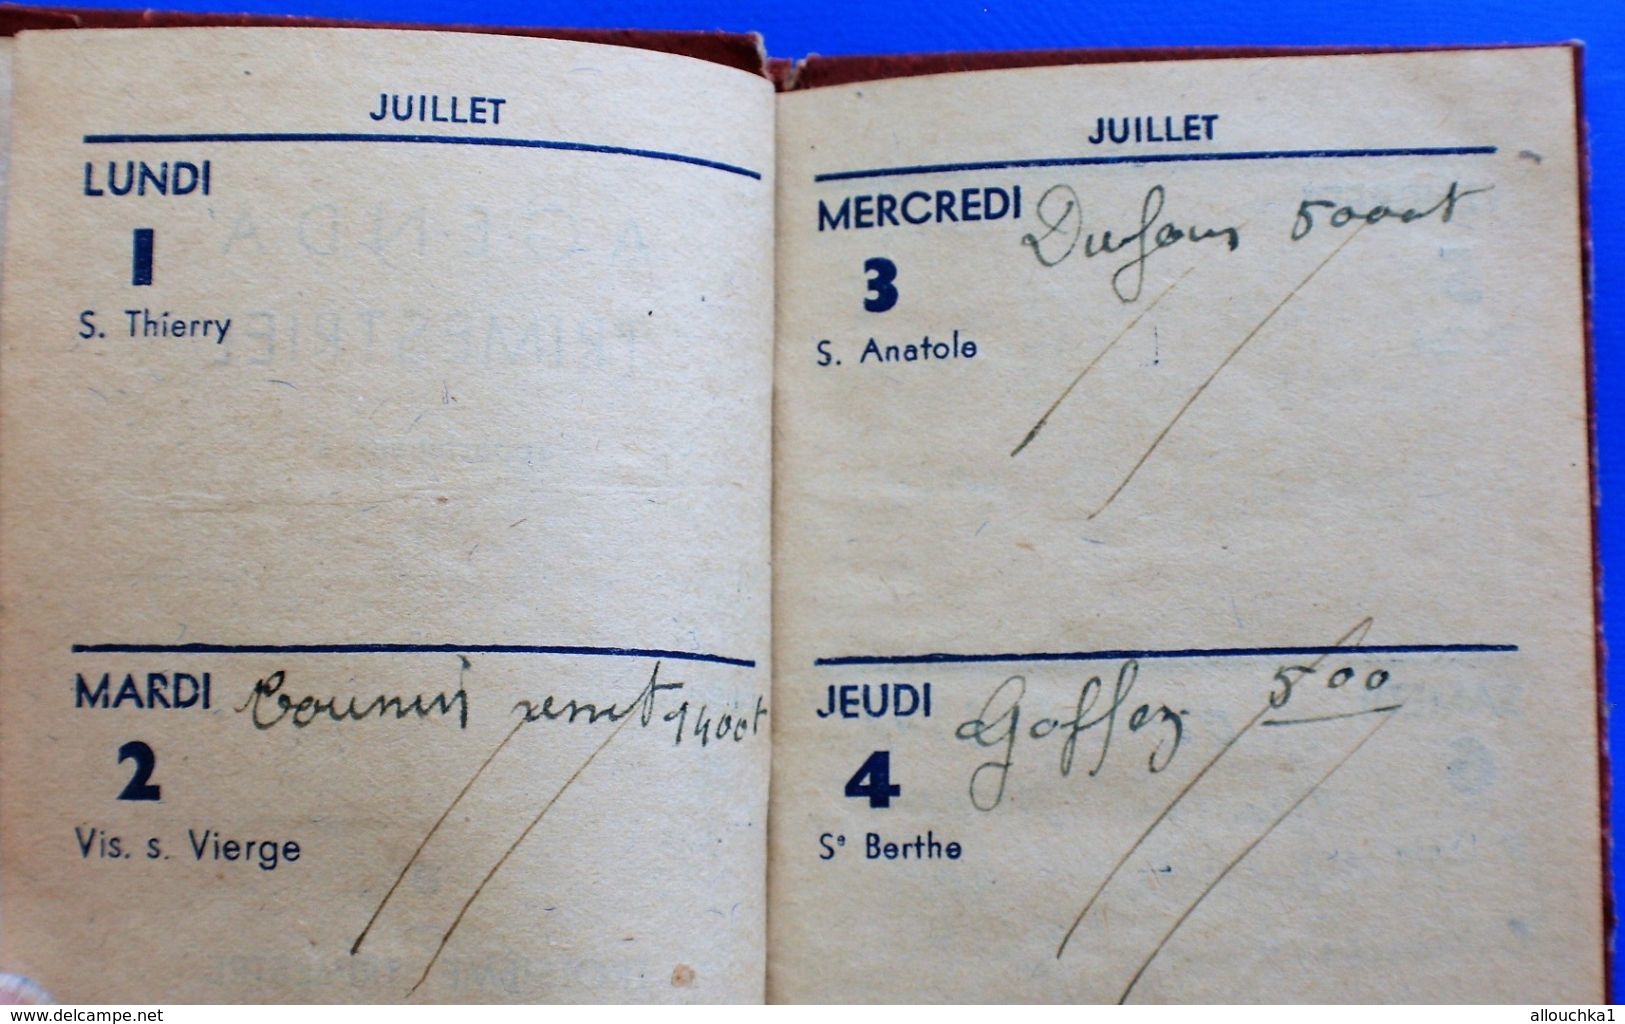 JUILLET
LUNDI
1
S. Thierry
MARDI
2
Vis. s. Vierge
JUILLET
MERCREDI
Dufour 5000t
3
S. Anatole
JEUDI
Goffez 500
4
Se Berthe
www.delcampe.net
allouchka1